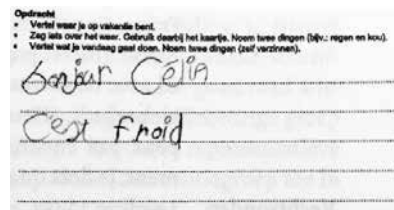 Opdracht
• Vertel waar je op vakantie bent.
• Zeg iets over het weer. Gebruik daarbij het kaartje. Noem twee dingen (bijv.: regen en kou).
• Vertel wat je vandaag gaat doen. Noem twee dingen (zelf verzinnen).
bonjour Célin
C'est froid